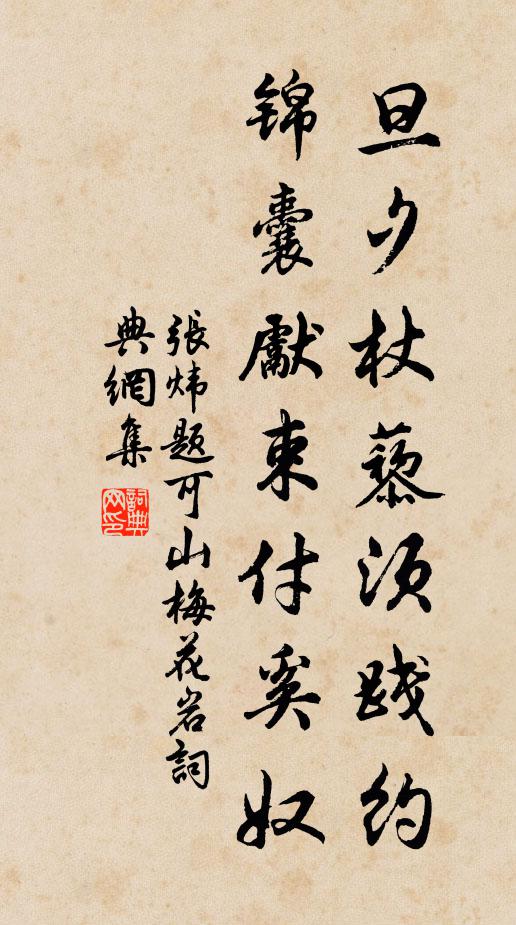 旦夕杖藜须践约
锦囊獻束付奚奴
張炜题可山梅花岩詞
典網集
詞典網印